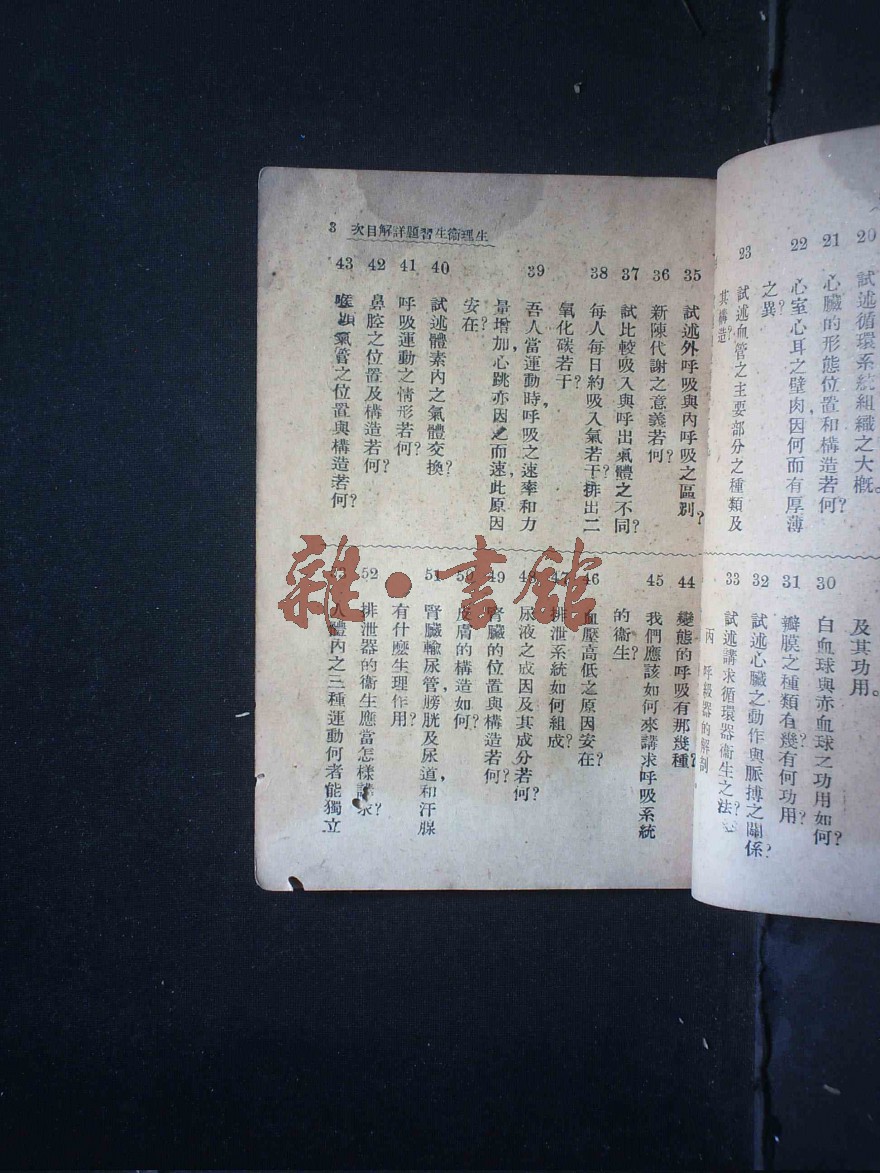 20 試述循環系統組織之大概。
21 心臟的形態位置和構造若何？
22 心室心耳之壁肉因何而有厚薄
之異？
23 試述血管之主要部分之種類及
其構造？
及其功用。
30 白血球與赤血球之功用如何？
31 瓣膜之種類有幾有何功用？
32 試述心臟之動作與脈搏之關係？
33 試述講求循環器衞生之法？
丙 呼級器的解剖
3 生理衞生習題詳解目次
35 試述外呼吸與內呼吸之區別？
36 新陳代謝之意義若何？
37 試比較吸入與呼出氣體之不同？
38 每人每日約吸入氣若干排出二
氧化碳若干？
39 吾人當運動時，呼吸之速率和力
量增加，心跳亦因之而速，此原因
安在？
40 試述體素內之氣體交換？
41 呼吸運動之情形若何？
42 鼻腔之位置及構造若何？
43 喉頭氣管之位置與構造若何？
44 變態的呼吸有那幾種？
45 我們應該如何來講求呼吸系統
的衞生？
46 血壓高低之原因安在？
47 排泄系統如何組成？
48 尿液之成因及其成分若何？
49 腎臟的位置與構造若何？
50 皮膚的構造如何？
51 腎臟，輸尿管，膀胱及尿道和汗腺，
有什麽生理作用？
52 排泄器的衞生應當怎樣講求？
人體內之三種運動何者能獨立
雜·書館